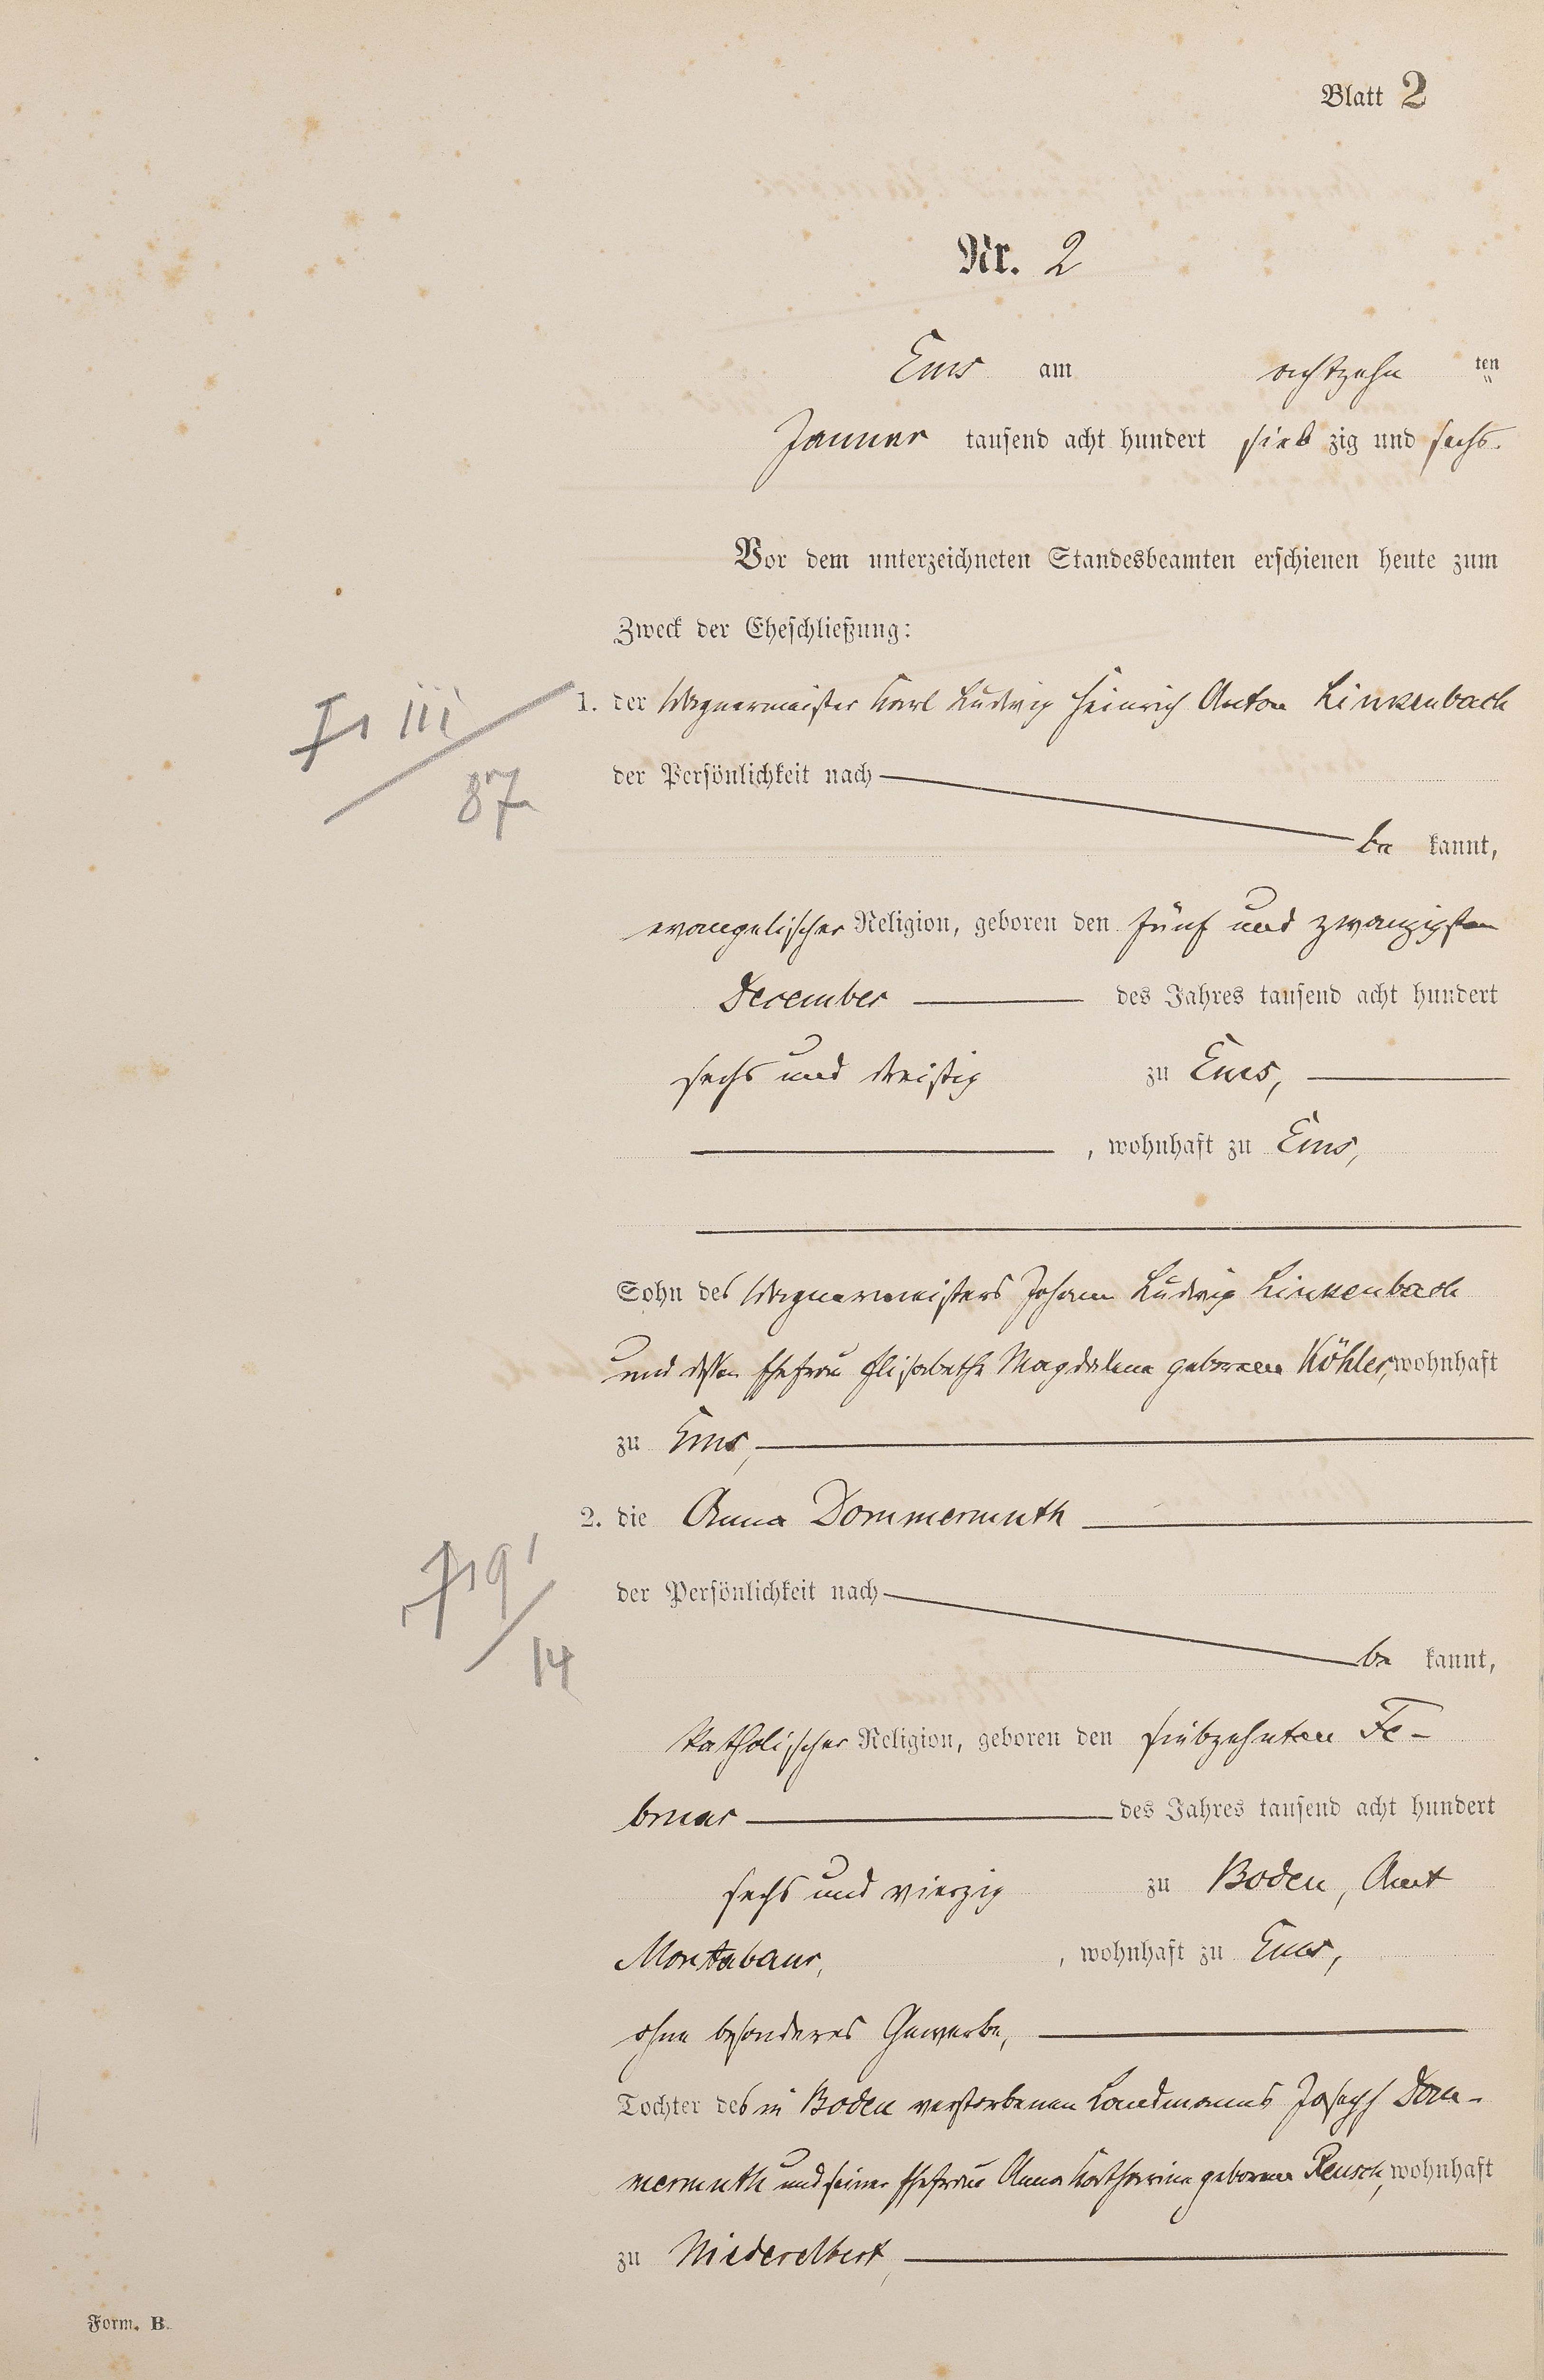 Blatt 2
Nr. 2
Ems am achtzehn ten
Januar tausend acht hundert sieb zig und sechs.
Vor dem unterzeichneten Standesbeamten erschienen heute zum
Zweck der Eheschließung:
1. der Wagnermeister Karl Ludwig Heinrich Anton Linkenbach
der Persönlichkeit nach
be kannt,
evangelischer Religion, geboren den fünf und zwanzigsten
December des Jahres tausend acht hundert
sechs und dreisig zu Ems,
, wohnhaft zu Ems,
Sohn des Wagnermeisters Johann Ludwig Linkenbach
und dessen Ehefrau Elisabethe Magdalena geborene Köhler, wohnhaft
zu Ems,
2. die Anna Dommermuth
der Persönlichkeit nach
be kannt,
katholischer Religion, geboren den siebzehnten Fe-
bruar des Jahres tausend acht hundert
sechs und vierzig zu Boden, Amt
Montabaur, , wohnhaft zu Ems,
ohne besonderes Gewerbe,
Tochter des in Boden verstorbenen Landmanns Joseph Dom-
mermuth und seiner Ehefrau Anna Katharina geborene Reusch, wohnhaft
zu Niederelbert,
87
14
Form. B.